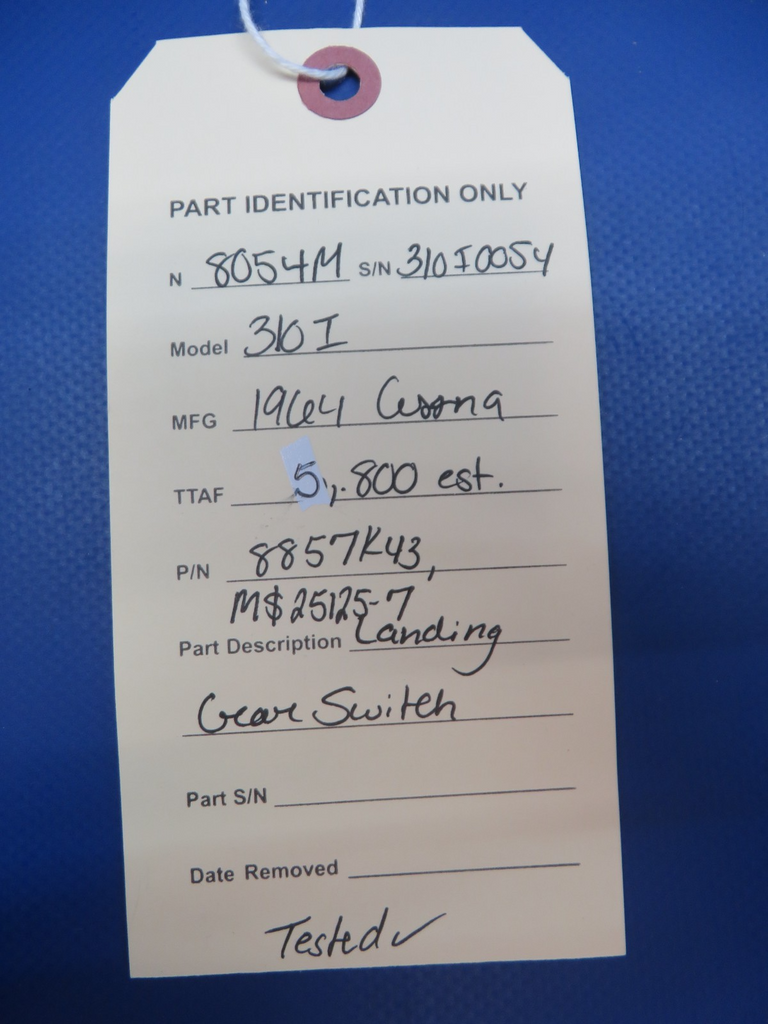 PART IDENTIFICATION ONLY
N 8054M S/N 310I0054
Model 310I
MFG 1964 Cessna
TTAF 5,.800 est.
P/N 8857K43,
M$25125-7
Part Description Landing
Gear Switch
Part S/N
Date Removed
Tested ✓